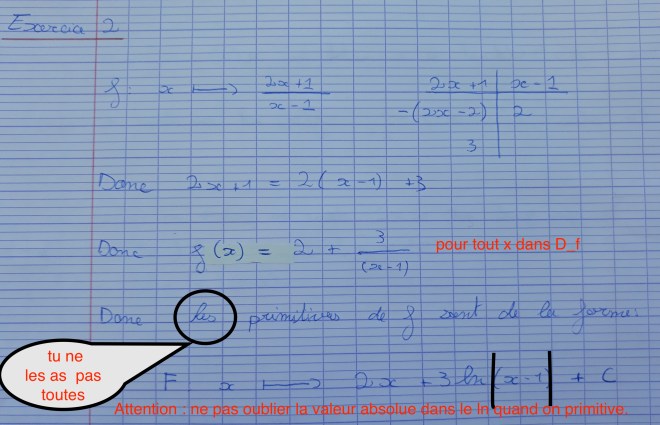 Exercice 2
f : x ⟼ (2x+1)/(x-1)
2x+1 | x-1
-(2x-2) | 2
3
Donc 2x+1 = 2(x-1) +3
Donc f(x) = 2 + 3/(x-1) pour tout x dans D_f
Donc les primitives de f sont de la forme:
tu ne
les as pas
toutes
F : x ⟼ 2x + 3 ln|(x-1)| + C
Attention : ne pas oublier la valeur absolue dans le ln quand on primitive.